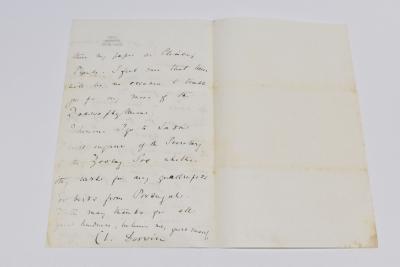 than my paper on Climbing
Plants. I feel sure that there
will be no occasion to trouble
you for any more of the
Drosophyllum.
Whenever I go to London
I will enquire of the Secretary
of the Zoolog. Soc. whether
they wish for any quadrupeds
or birds from Portugal.
With many thanks for all
your kindness, believe me, yours sincerely
Ch. Darwin